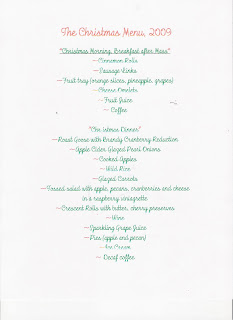 The Christmas Menu, 2009
"Christmas Morning Breakfast after Mass"
~Cinnamon Rolls
~Sausage Links
~Fruit tray (orange slices, pineapple, grapes)
~Cheese Omelets
~Fruit Juice
~ Coffee
"Christmas Dinner"
~Roast Goose with Brandy Cranberry Reduction
~Apple Cider Glazed Pearl Onions
~ Cooked Apples
~Wild Rice
~Glazed Carrots
~Tossed salad with apple, pecans, cranberries and cheese
in a raspberry vinaigrette
~Crescent Rolls with butter, cherry preserves
~Wine
~Sparkling Grape Juice
~Pies (apple and pecan)
~Ice Cream
~ Decaf coffee